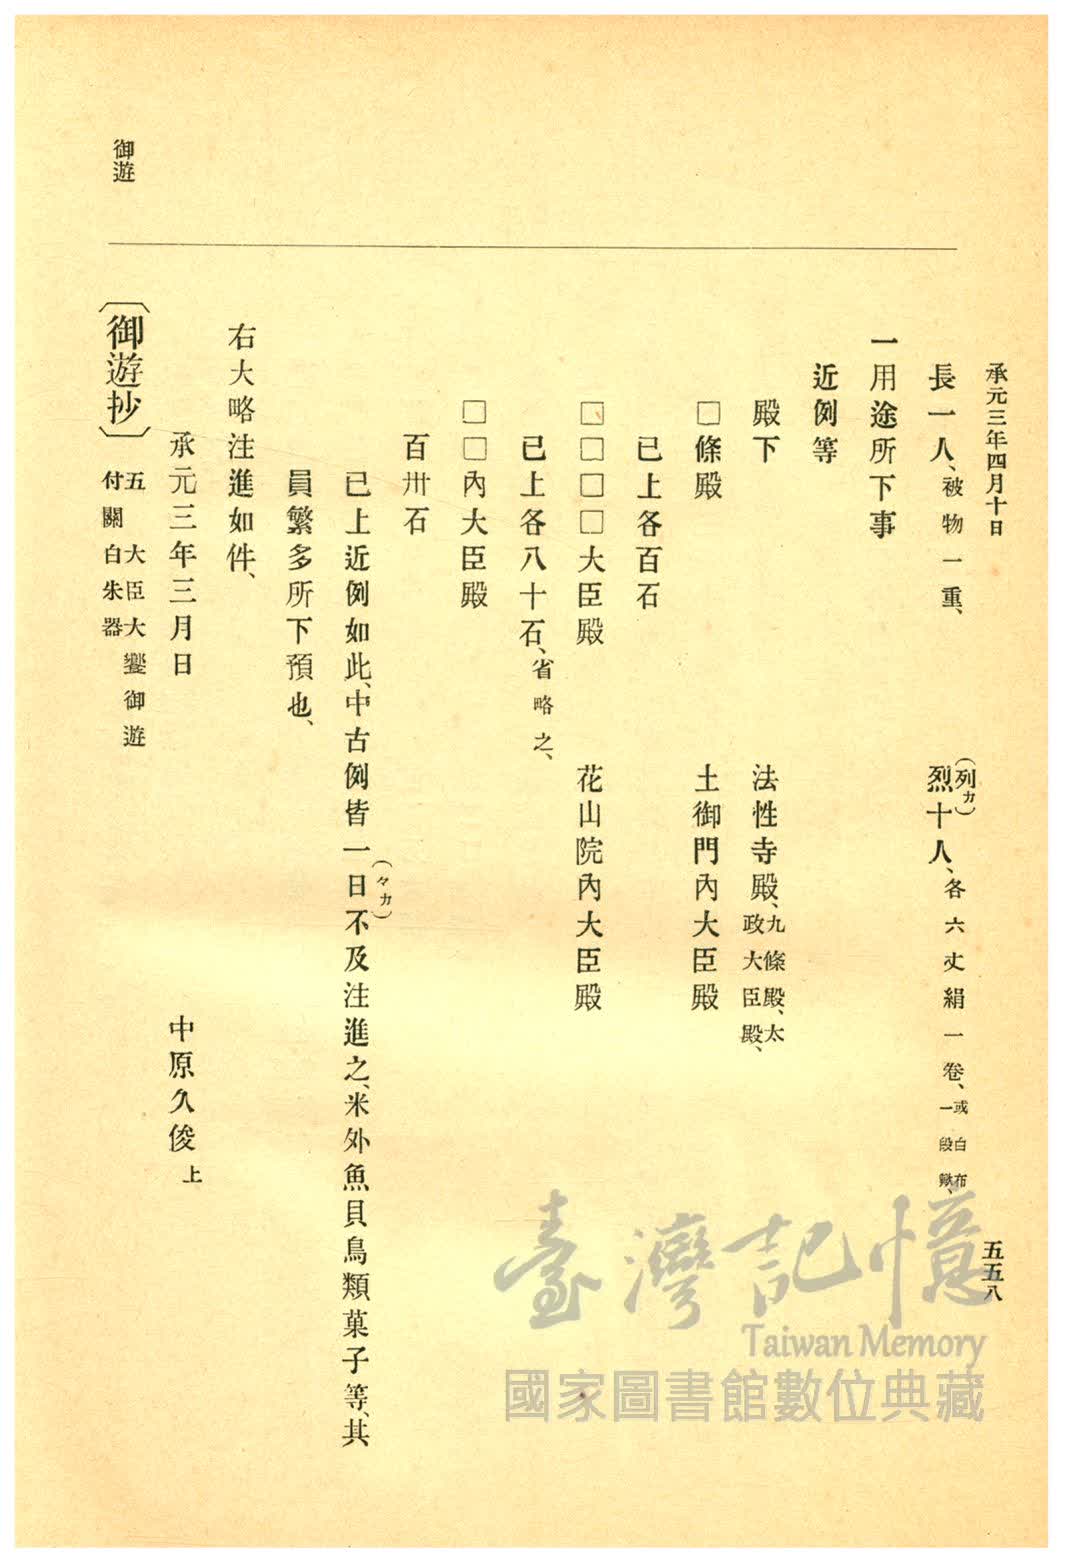 承元三年四月十日
五五八
長一人、被物一重、
烈十人、各六丈絹一卷、或白布一段歟、
(列カ)
一用途所下事
近例等
殿下
法性寺殿、九條殿、太政大臣殿、
□條殿
土御門內大臣殿
已上各百石
□□□□大臣殿
花山院內大臣殿
已上各八十石、省略之、
□□內大臣殿
百卅石
已上近例如此、中古例皆一日不及注進之、米外魚貝鳥類菓子等、其
(々カ)
員繁多所下預也、
右大略注進如件、
承元三年三月日
中原久俊上
〔御遊抄〕五 大臣大饗御遊
付關白朱器
御遊
臺灣記憶
Taiwan Memory
國家圖書館數位典藏